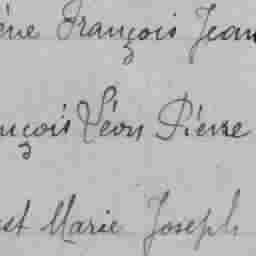 ène François Jean
nçois Léon Pierre
est Marie Joseph